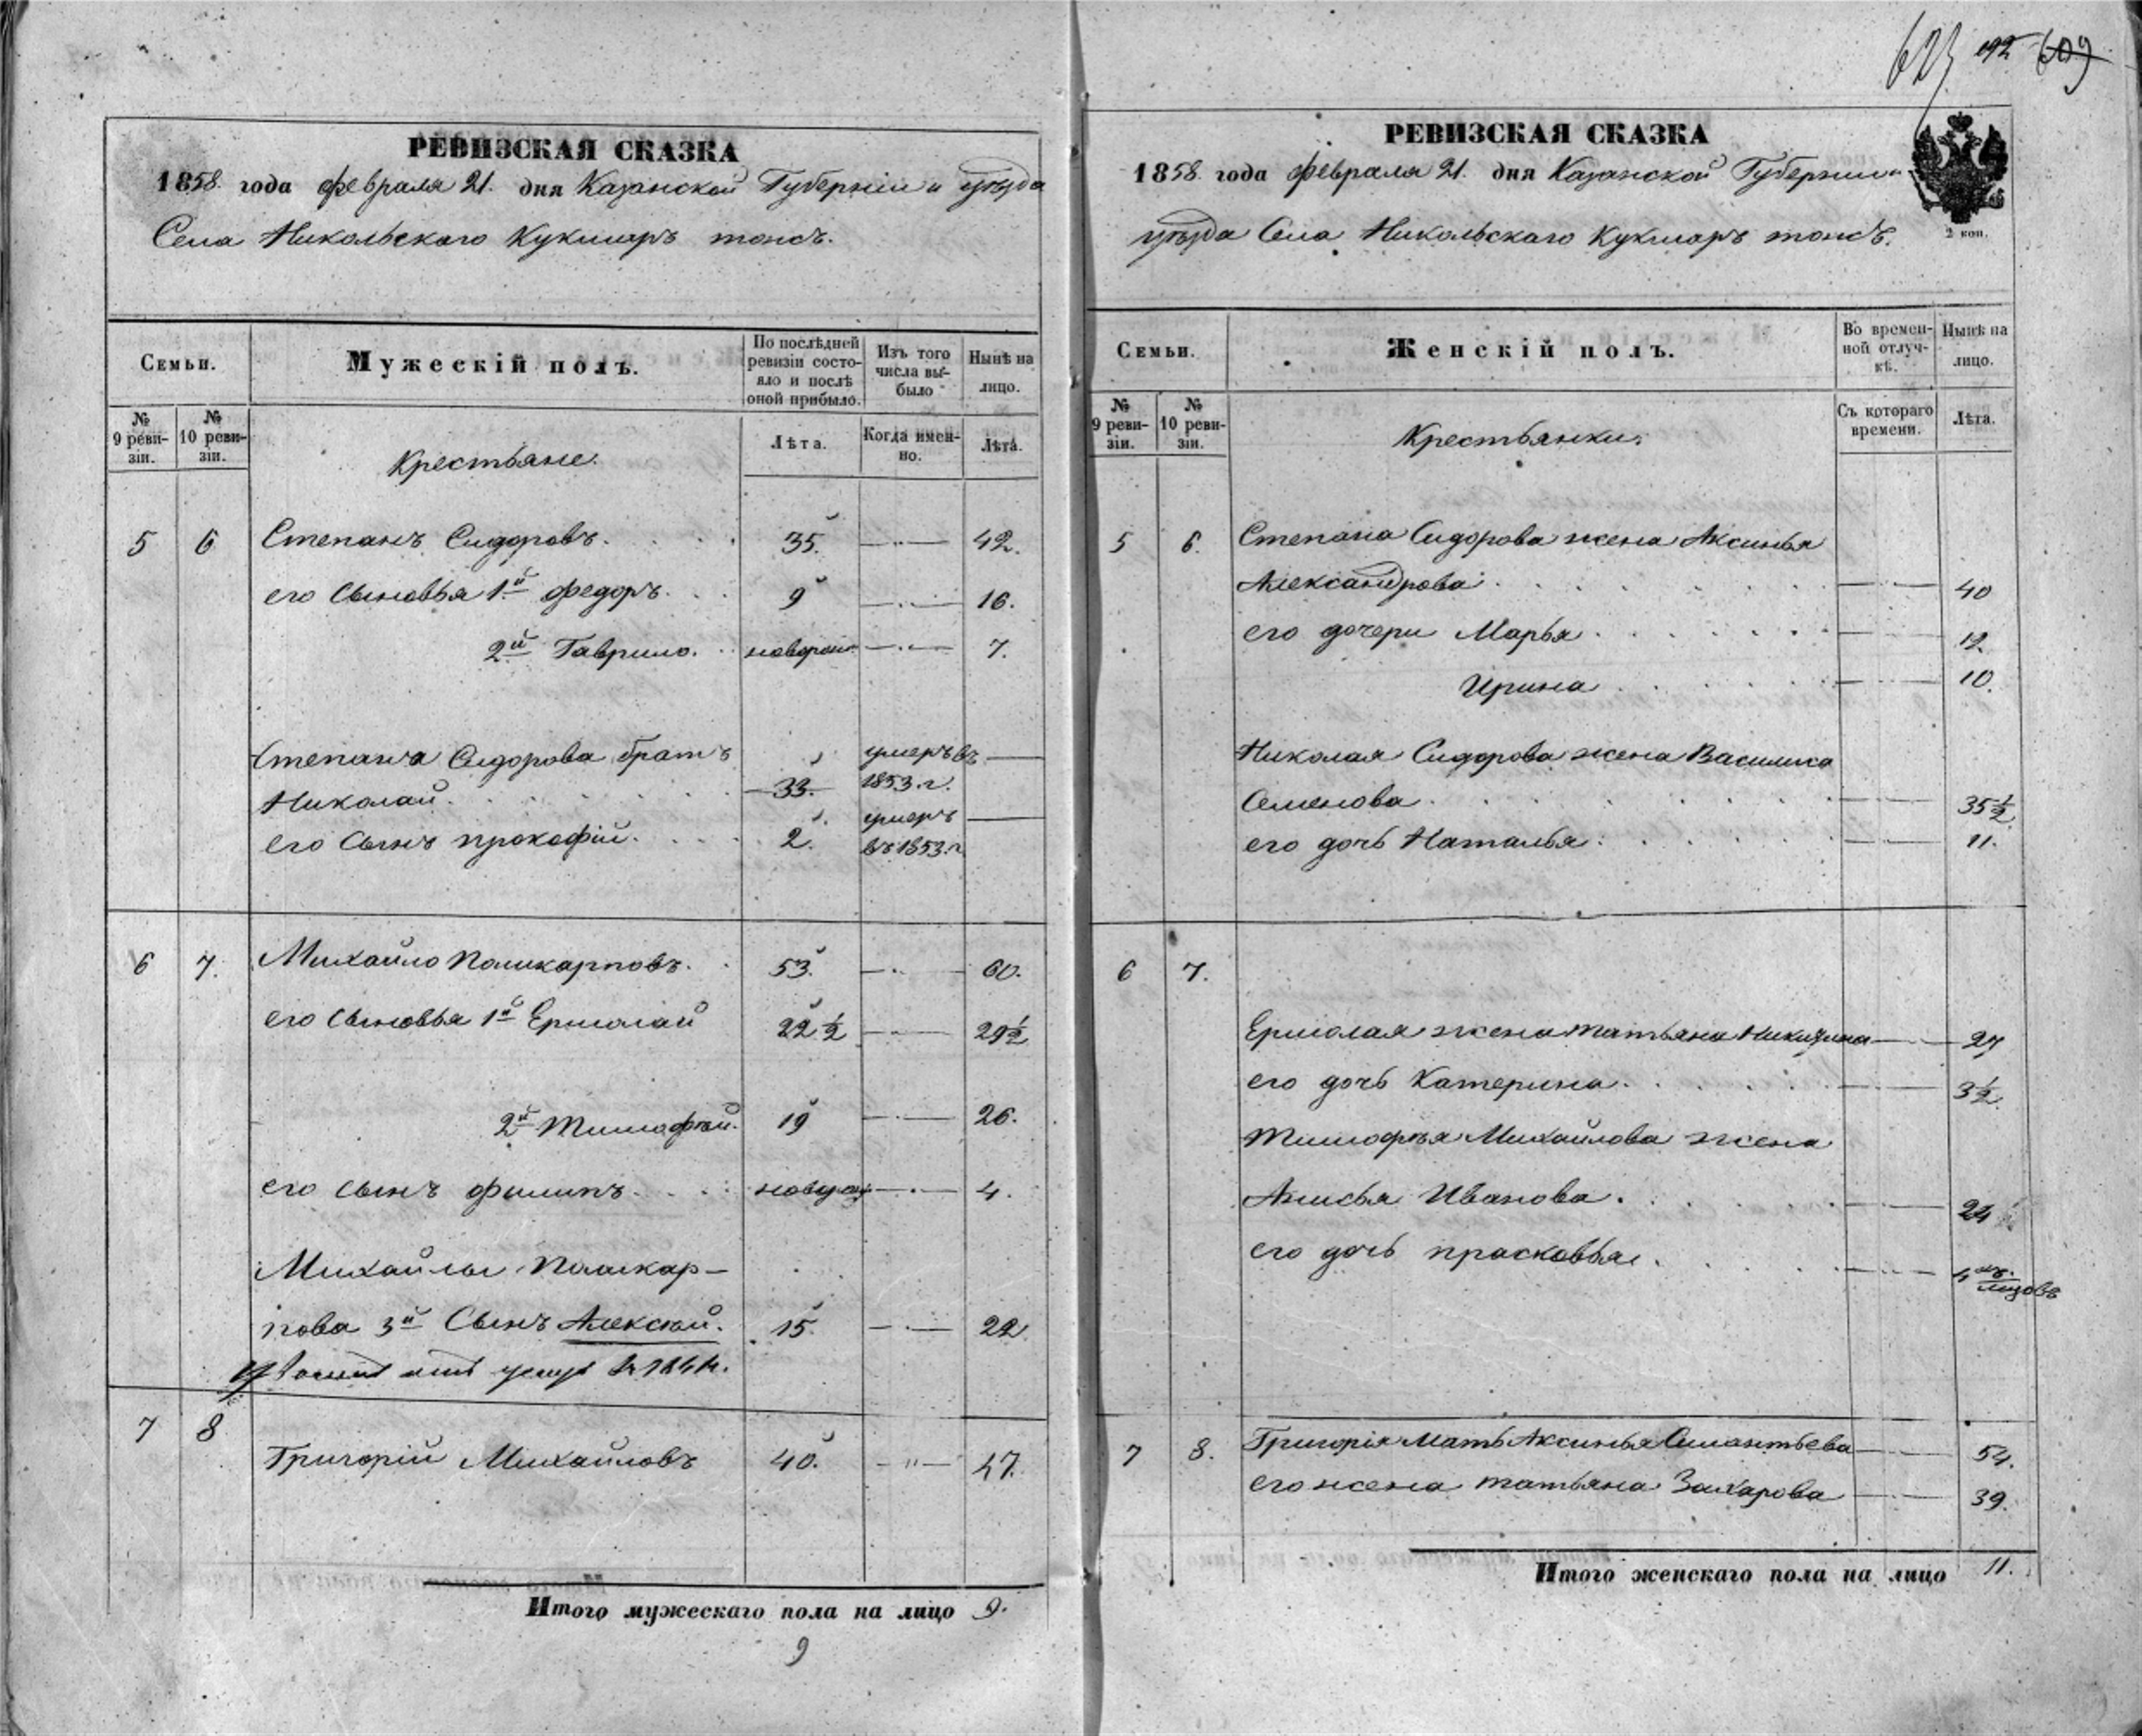 623 192 609
РЕВИЗСКАЯ СКАЗКА
1858. года февраля 21. дня Казанской Губерніи и уѣзда
Села Никольскаго Кукморъ тожъ.
Семьи.
Мужескій полъ.
По послѣдней ревизіи состо-
яло и послѣ
оной прибыло.
Изъ того
числа вы-
было
Нынѣ на
лицо.
№
9 реви-
зіи.
№
10 реви-
зіи.
Крестьяне.
Лѣта.
Когда имен-
но.
Лѣта.
5 6 Степанъ Сидоровъ. 35. 42.
его Сыновья 1й федоръ. 9 16.
2й Гаврило. новорож. 7.
Степана Сидорова братъ умеръ въ
Николай. 33. 1853.г.
умеръ
его Сынъ прокофій. 2. въ 1853.г.
6 7. Михайло Поликарповъ. 53. 60.
его Сыновья 1й Ермолай 22 1/2 29 1/2
2й Тимофей. 19 26.
его сынъ филипъ. 4.
Михайлы Поликар-
пова 3й Сынъ Алексѣй. 15. 22.
7 8 Григорій Михайловъ 40. 47.
Итого мужескаго пола на лицо 9.
9
РЕВИЗСКАЯ СКАЗКА
1858. года февраля 21. дня Казанской Губерніи и
уѣзда Села Никольскаго Кукморъ тожъ.
2 коп.
Семьи.
Женскій полъ.
Во времен-
ной отлуч-
кѣ.
Нынѣ на
лицо.
№
9 реви-
зіи.
№
10 реви-
зіи.
Крестьянки.
Съ котораго
времени.
Лѣта.
5 6. Степана Сидорова жена Аксинья
Александрова. 40
его дочери Марья. 12.
Ирина 10.
Николая Сидорова жена Василиса
Семенова. 35 1/2
его дочь Наталья. 11.
6 7.
Ермолая жена татьяна Никитина 27
его дочь Катерина. 3 1/2.
тимофѣя Михайлова жена
Анисья Иванова. 24
его дочь прасковья.
7 8. Григорія мать Аксинья 54.
его жена татьяна Захарова 39.
Итого женскаго пола на лицо 11.